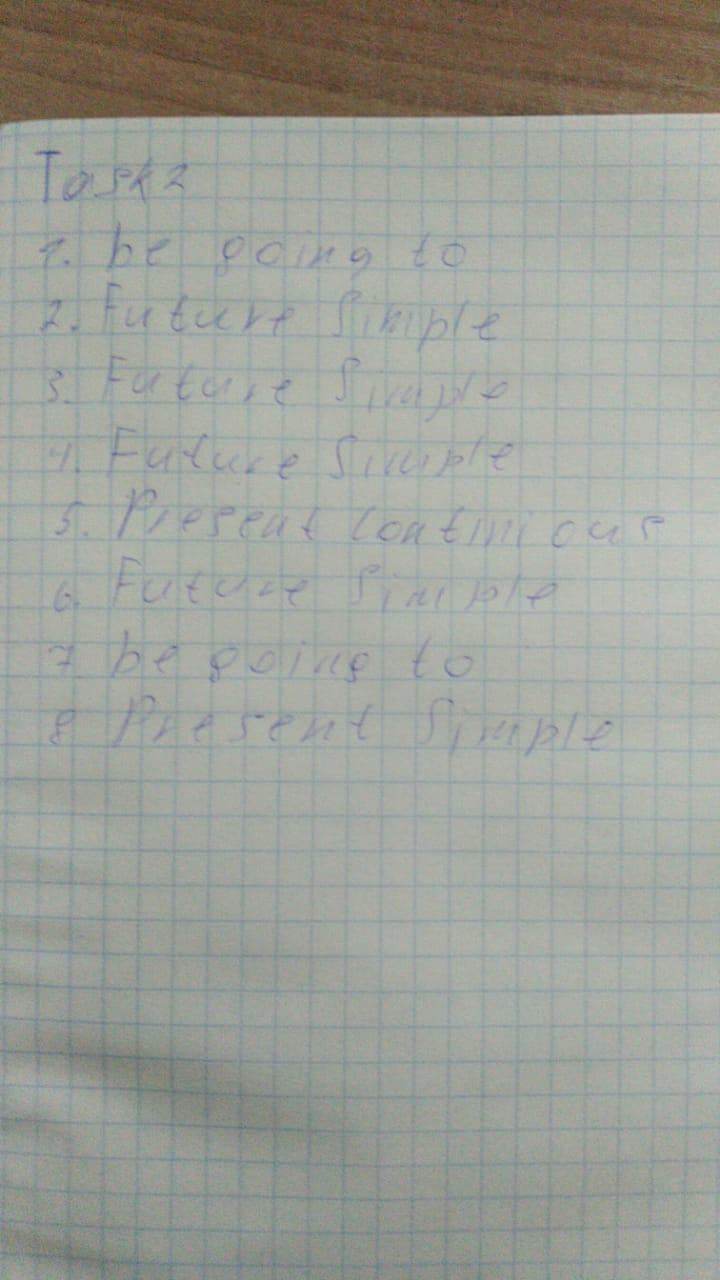 Task 2
1. be going to
2. Future Simple
3. Future Simple
4. Future Simple
5. Present Continious
6. Future Simple
7. be going to
8 Present Simple